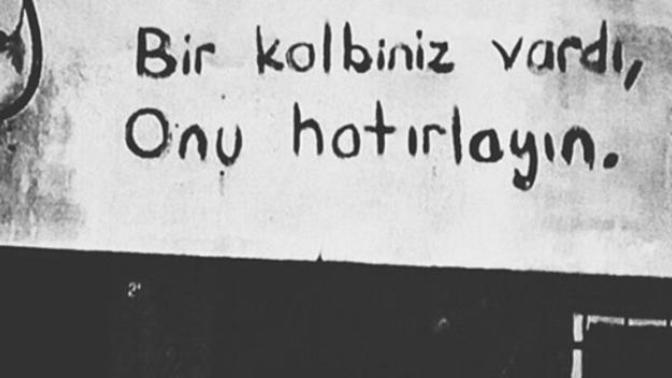 Bir kalbiniz vardı,
Onu hatırlayın.